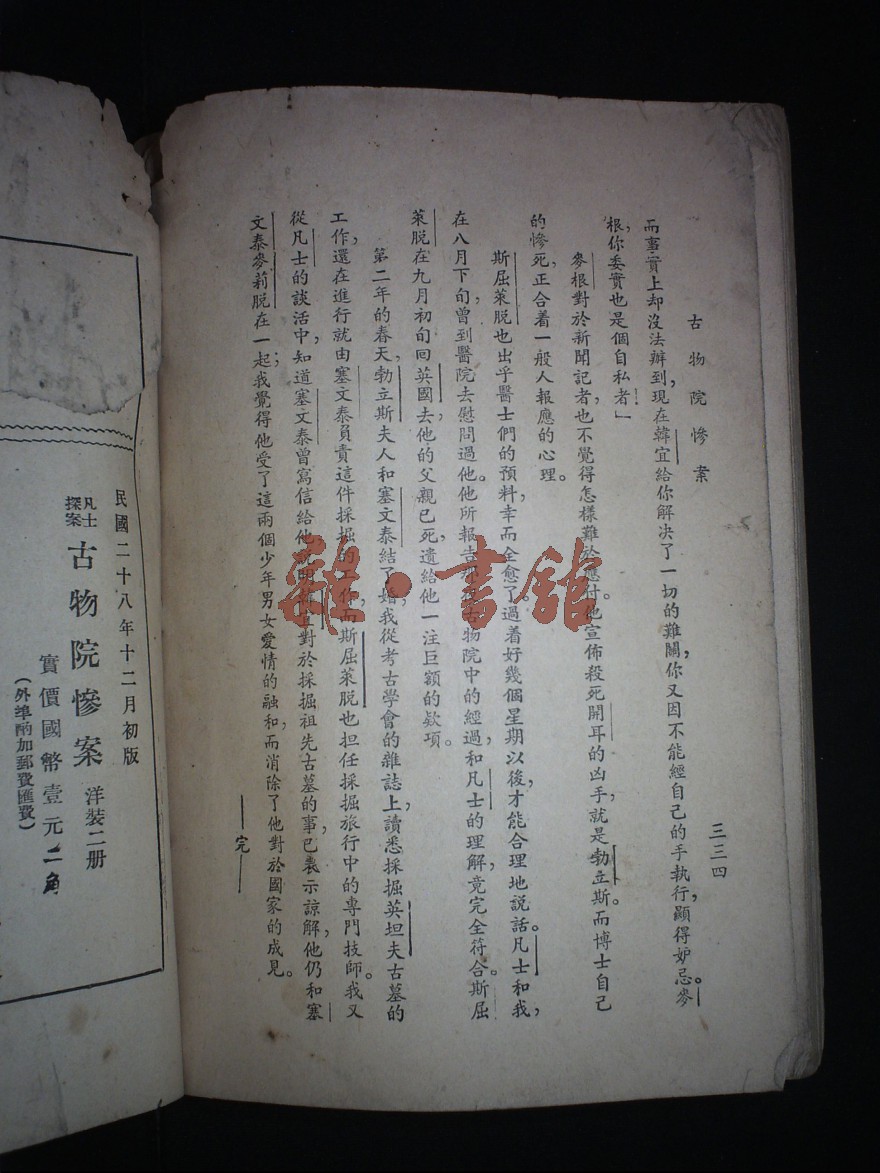 古物院慘案
三三四
而事實上却沒法辦到,現在韓宜給你解決了一切的難關,你又因不能經自己的手執行,顯得妒忌。麥
根,你委實也是個自私者!」
麥根對於新聞記者,也不覺得怎樣難於應付。他宣佈殺死開耳的凶手,就是勃立斯。而博士自己
的慘死,正合着一般人報應的心理。
斯屈萊脫也出乎醫士們的預料,幸而全愈了。過着好幾個星期以後,才能合理地說話。凡士和我,
在八月下旬,曾到醫院去慰問過他。他所報告那夜古物院中的經過,和凡士的理解,竟完全符合。斯屈
萊脫在九月初旬回英國去,他的父親已死,遺給他一注巨額的欵項。
第二年的春天,勃立斯夫人和塞文泰結了婚,我從考古學會的雜誌上,讀悉採掘英坦夫古墓的
工作,還在進行,就由塞文泰負責這件採掘的工作,而斯屈萊脫也担任採掘旅行中的專門技師。我又
從凡士的談活中,知道塞文泰曾寫信給他,說明韓宜對於採掘祖先古墓的事,已表示諒解,他仍和塞
文泰麥莉脫在一起;我覺得他受了這兩個少年男女愛情的融和,而消除了他對於國家的成見。
——完——
民國二十八年十二月初版
凡士探案 古物院慘案 洋裝二册
實價國幣壹元二角
(外埠酌加郵費匯費)
雜·書館